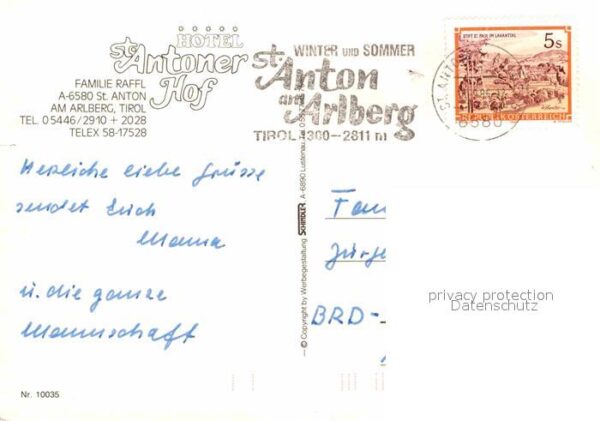 HOTEL
St. Antoner
Hof
FAMILIE RAFFL
A-6580 St. ANTON
AM ARLBERG, TIROL
TEL. 05446/2910 + 2028
TELEX 58-17528
WINTER UND SOMMER
St. Anton
am
Arlberg
TIROL 1300-2811 m
STIFT ST. PAUL IM LAVANTTAL
5s
REPUBLIK ÖSTERREICH
ST. ANTON
6580
Herzliche liebe Grüsse
sendet Euch
Mama
u. die ganze
Mannschaft
© Copyright by Werbegestaltung SCHINDLER A-6890 Lustenau
Fam
Jürge
BRD-
privacy protection
Datenschutz
Nr. 10035